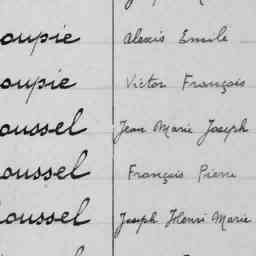 oupie Alexis Emile
oupie Victor François
oussel Jean Marie Joseph
oussel François Pierre
oussel Joseph Henri Marie